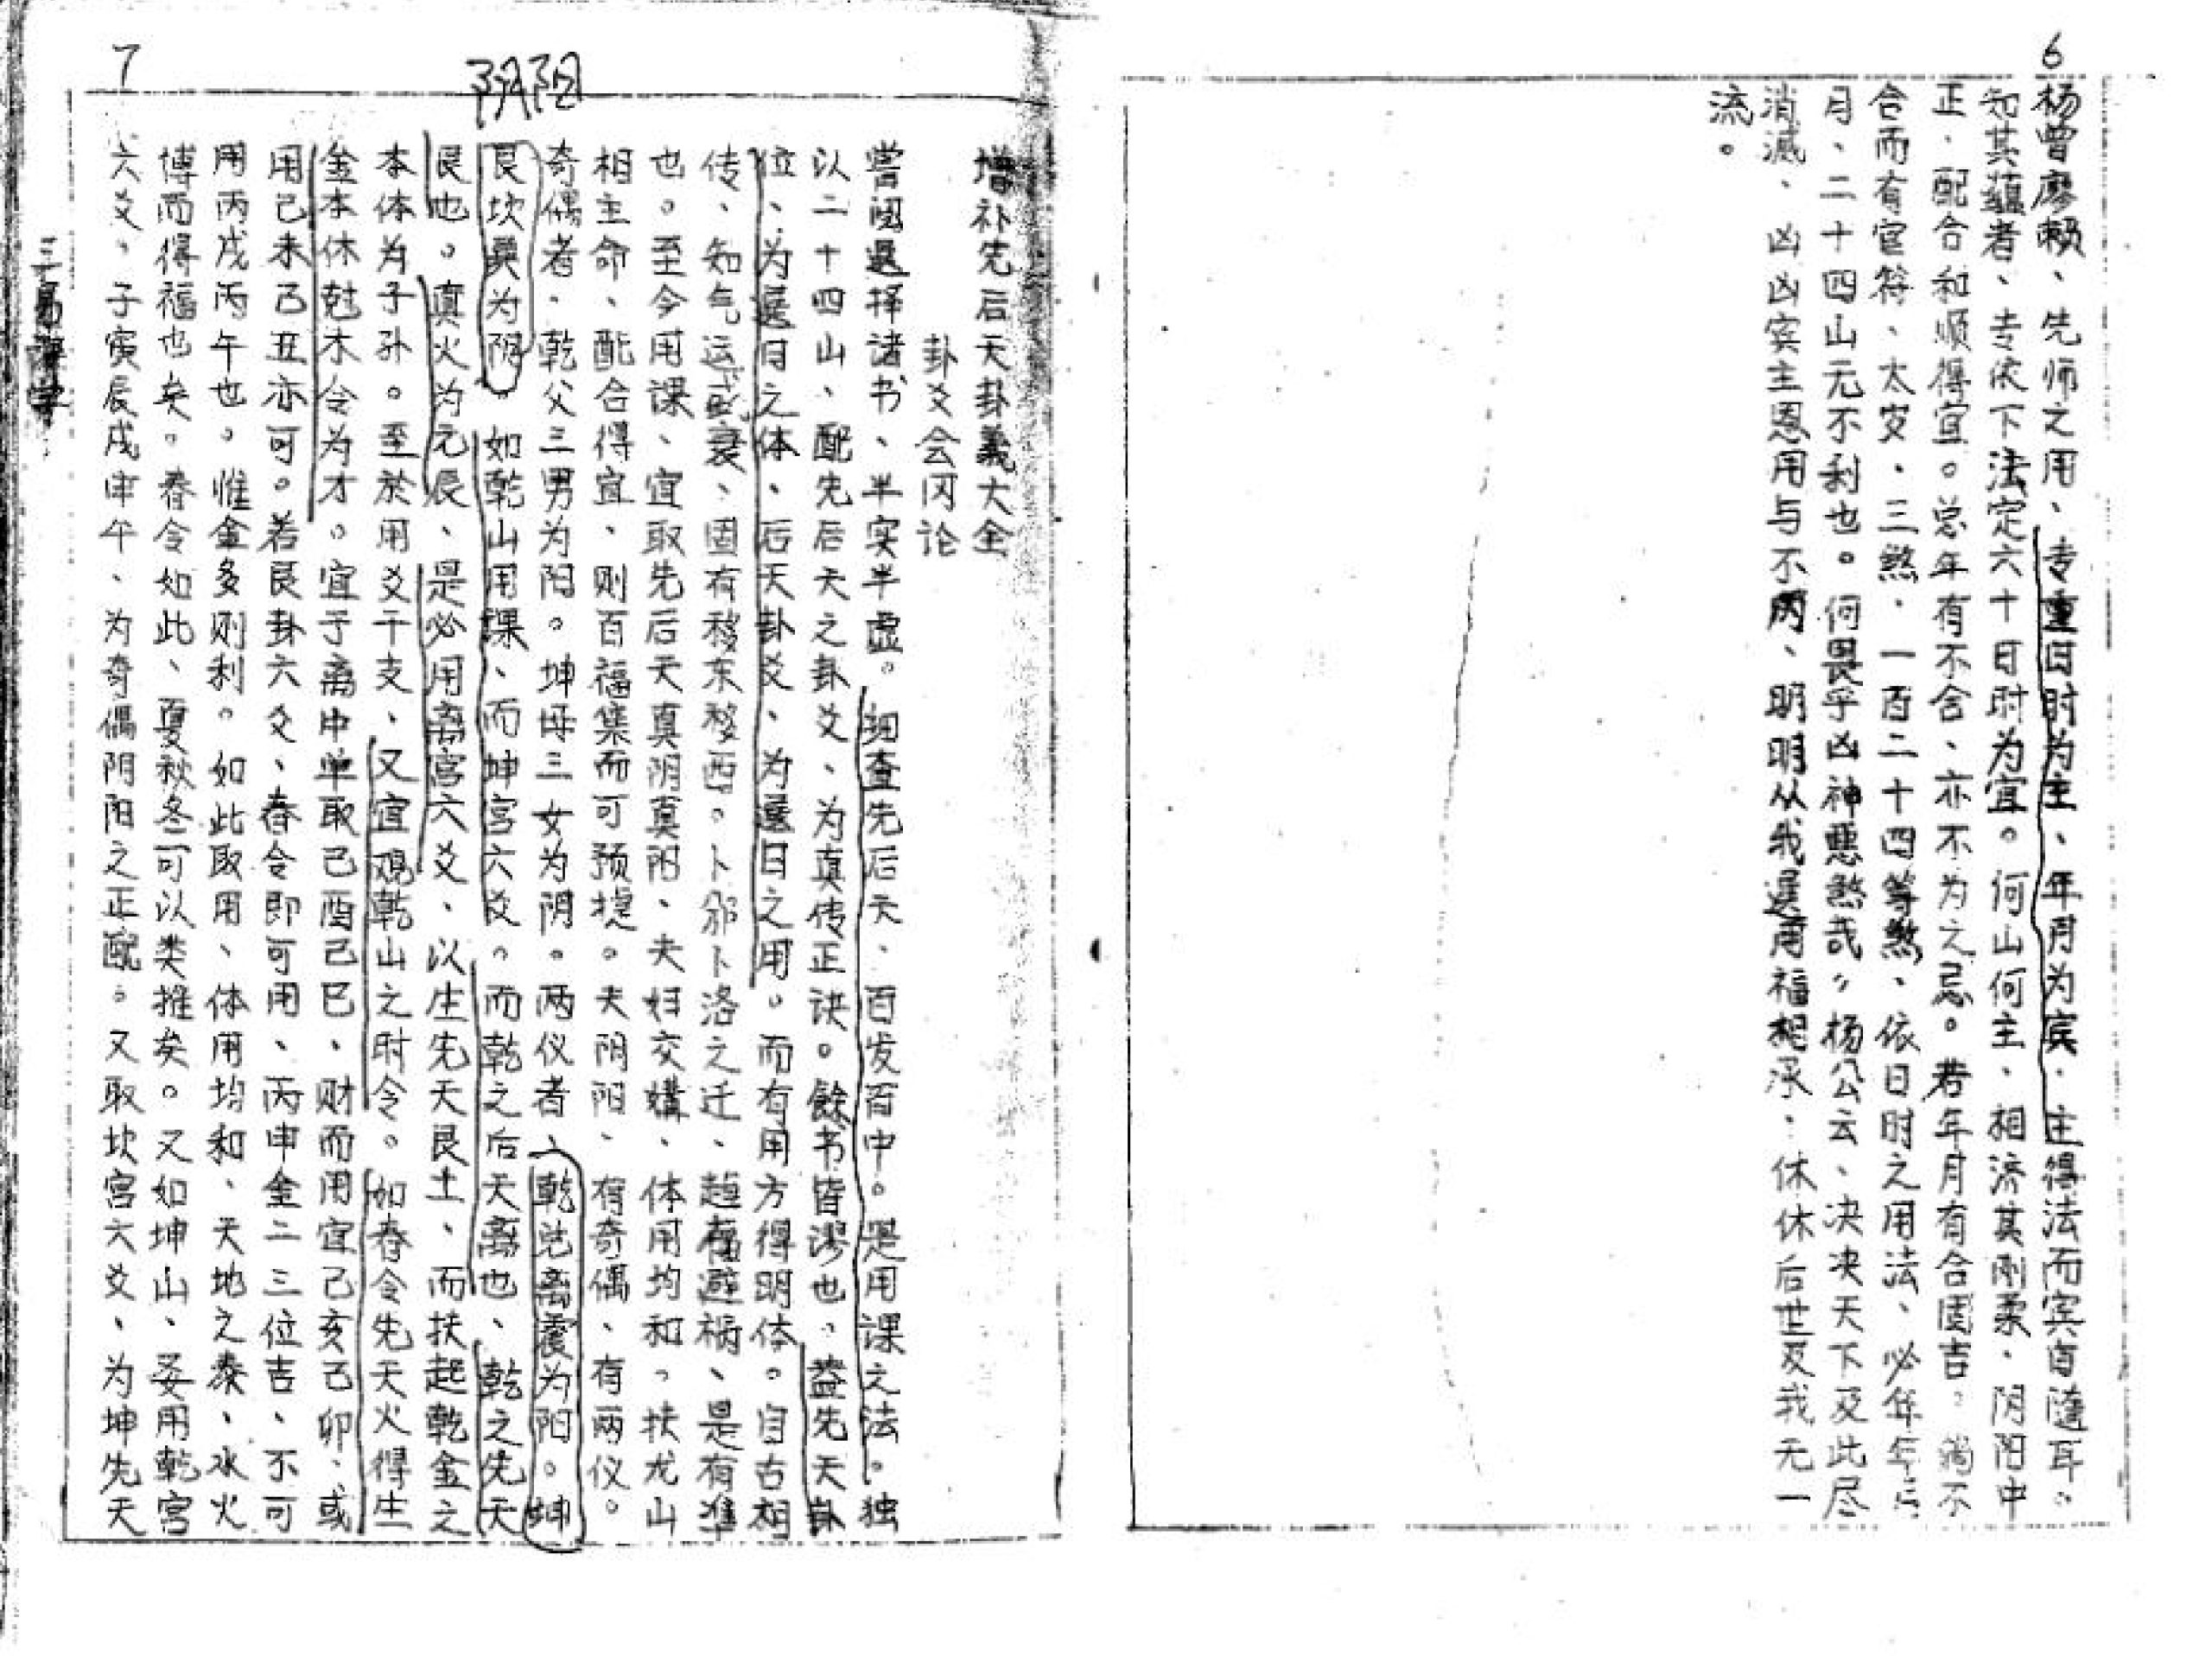 6
杨曾廖赖、先师之用、专重日时为主、年月为宾．主得法而宾自随耳。
知其蕴者、专依下法定六十日时为宜。何山何主、相济其刚柔．阴阳中
正．配合和顺得宜。总年有不合、亦不为之忌。若年月有合固吉。倘不
合而有官符、太岁．三煞．一百二十四等煞、依日时之用法、必年年
月、二十四山元不利也。何畏乎凶神恶煞哉。杨公云、决决天下及此尽
消减、凶凶宾主恩用与不两、明明从我选用福相承．休休后世及我无一
流。
7
阴阳
增补先后天卦义大全
卦爻会冈论
尝阅选择诸书、半实半虚。细查先后天、百发百中。是用课之法。独
以二十四山、配先后天之卦爻、为真传正诀。餘书皆谬也．盖先天卦
位、为选日之体、后天卦爻、为选日之用。而有用方得明体。自古相
传、知气运盛衰、固有移东移西。卜邠卜洛之迁、趋福避祸、是有准
也。至今用课、宜取先后天真阴真阳、夫妇交媾、体用均和。扶龙山
相主命、配合得宜、则百福集而可预提。夫阴阳、有奇偶、有两仪。
奇偶者、乾父三男为阳。坤母三女为阴。两仪者、乾兑离震为阳。坤
艮坎巽为阴。如乾山用课、而坤宫六爻。而乾之后天离也、乾之先天
艮也。真火为元辰、是必用离宫六爻、以生先天艮土、而扶起乾金之
本体为子孙。至於用爻干支、又宜观乾山之时令。如春令先天火得生
金本休尅木令为才。宜于离中单取己酉己巳、财而用宜己亥己卯、或
用己未己丑亦可。若艮卦六爻、春令即可用、丙申金二三位吉、不可
用丙戌丙午也。惟金多则利。如此取用、体用均和、天地之泰、水火
傅而得福也矣。春令如此、夏秋冬可以类推矣。又如坤山、妥用乾宫
六爻。子寅辰戌申午、为奇偶阴阳之正配。又取坎宫六爻、为坤先天
三易